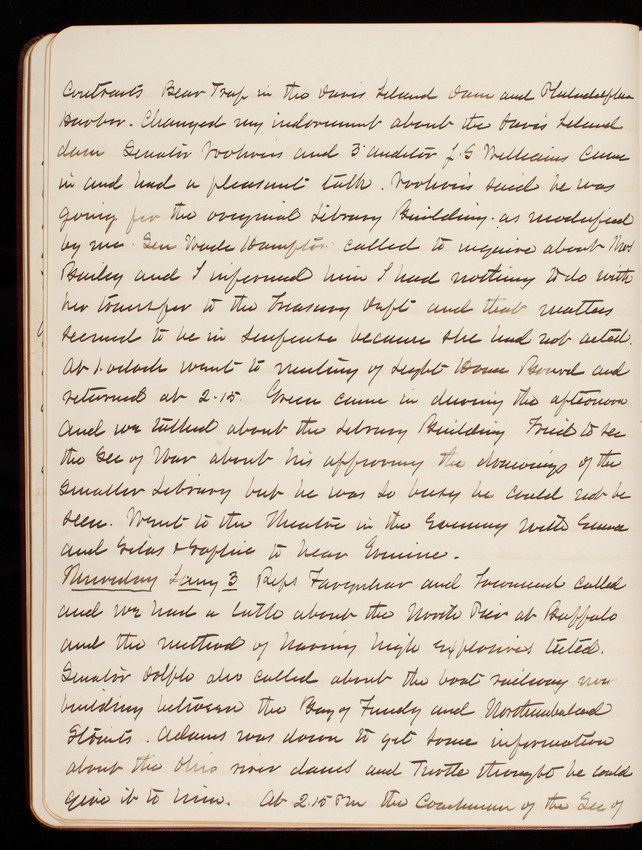 Contracts Bear Trap in the Davis Island Dam and Philadelphia
Harbor. Changed my indorsment about the Davis Island
dam Senator Voorhees and 3d auditor J. S Williams Came
in and had a pleasant talk. Voorhees said he was
going for the original Library Building as modified
by me. Gen Wade Hampton called to inquire about Mrs
Bailey and I informed him I had nothing to do with
her transfer to the Treasury Dept and that matters
seemed to be in suspense because she had not acted.
At 1 oclock went to meeting of Light House Board and
returned at 2.15. Green came in during the afternoon
and we talked about the Library Building Tried to see
the Sec of War about his approving the drawings of the
smaller Library but he was so busy he could not be
seen. Went to the Theatre in the Evening with Emma
and &
to hear
Thursday Jany 3 Reps Farquhar and Townsend called
and we had a talk about the North Pier at Buffalo
and the method of having high explosives tested.
Senator Dolph also called about the boat railway now
building between the Bay of Fundy and Northumberland
Straits. Adams was down to get some information
about the Ohio river dams and Turtle thought he could
give it to him. At 2.15 PM the Coachman of the Sec of